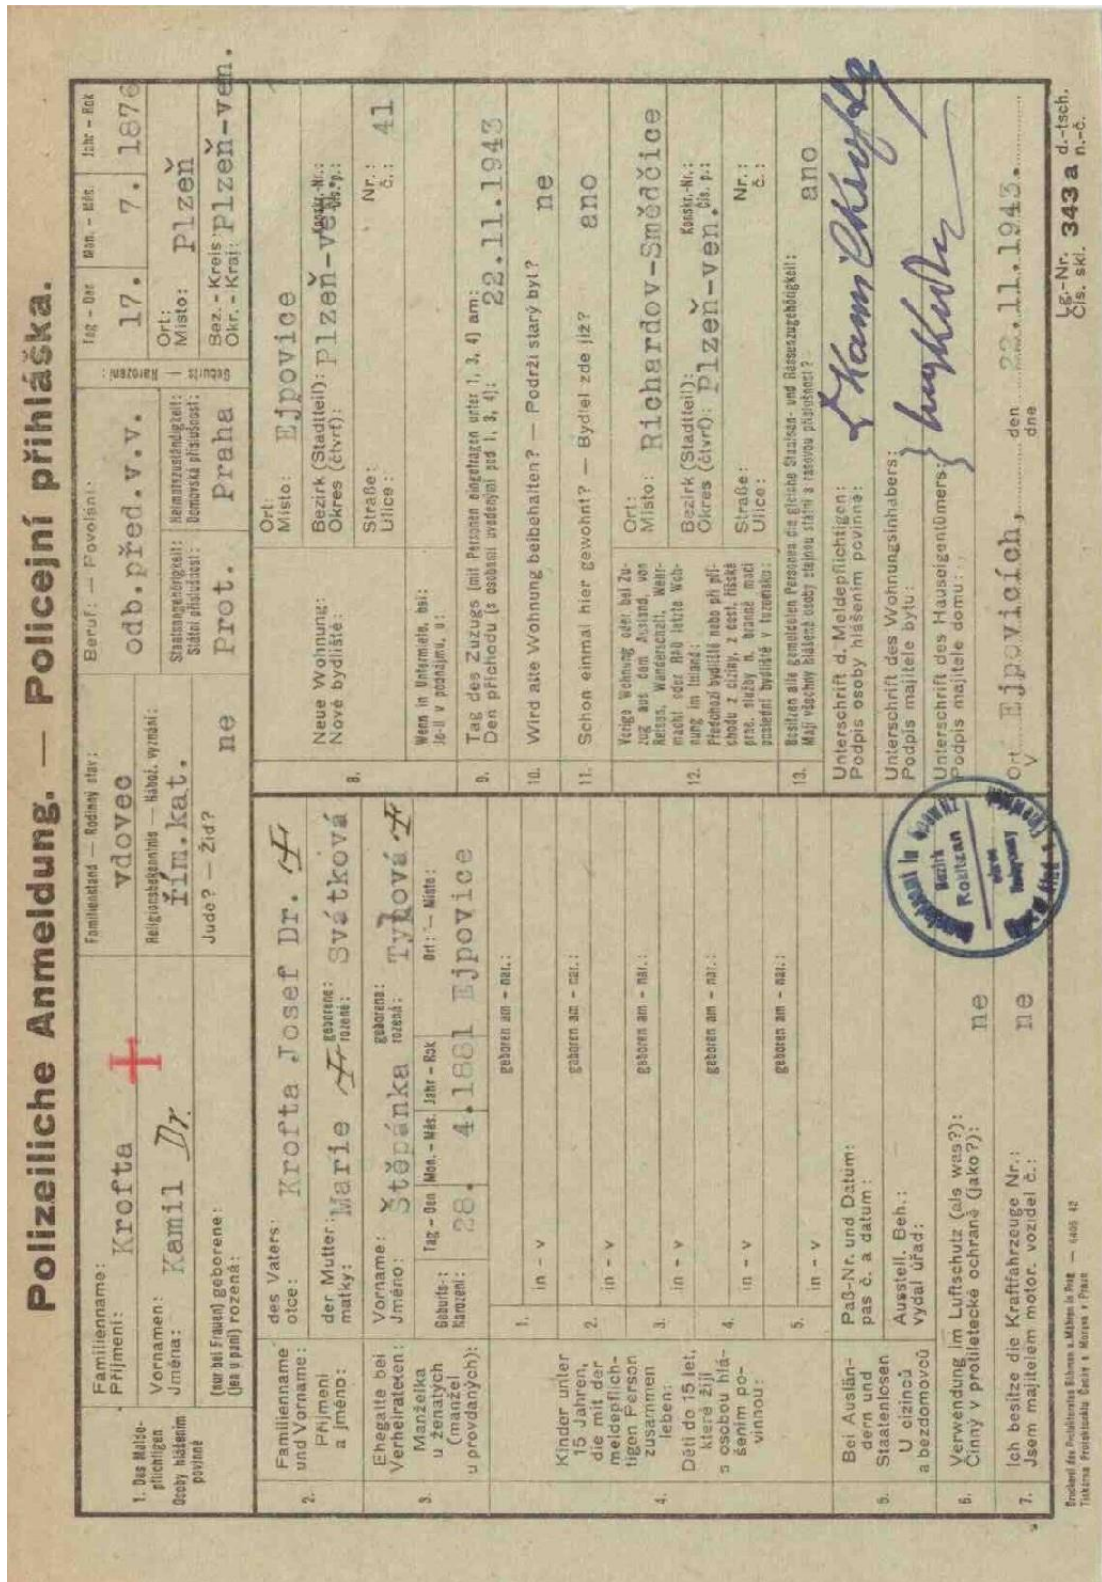 Polizeiliche Anmeldung. — Policejní přihláška.
1. Das Melde-
pflichtigen
Osoby hlášením
povinné
Familienname:
Příjmení: Krofta
Vornamen:
Jména: Kamil Dr.
(nur bei Frauen) geborene:
(jen u paní) rozená:
Familienstand — Rodinný stav:
vdovec
Religionsbekenntnis — Nábož. vyznání:
řím.kat.
Jude? — Žid? ne
Beruf: — Povolání:
odb.před.v.v.
Staatsangehörigkeit:
Státní příslušnost:
Prot.
Heimatzuständigkeit:
Domovská příslušnost:
Praha
Geburts — Narození:
Tag – Den Mon. – Měs. Jahr – Rok
17. 7. 1876
Ort:
Místo: Plzeň
Bez. - Kreis:
Okr. - Kraj: Plzeň-ven.
2.
Familienname
und Vorname:
Příjmení
a jméno:
des Vaters:
otce: Krofta Josef Dr.
der Mutter:
matky: Marie
geborene:
rozené: Svátková
3.
Ehegatte bei
Verheirateten:
Manželka
u ženatých
(manžel
u provdaných):
Vorname:
Jméno: Štěpánka
geborena:
rozená: Tyhová
Geburts-:
Narození:
Tag – Den Mon. – Měs. Jahr – Rok Ort: — Místo:
28. 4.1881 Ejpovice
4.
Kinder unter
15 Jahren,
die mit der
meldepflich-
tigen Person
zusammen
leben:
Děti do 15 let,
které žijí
s osobou hlá-
šením po-
vinnou:
1. geboren am – nar.:
in – v
2. geboren am – nar.:
in – v
3. geboren am – nar.:
in – v
4. geboren am – nar.:
in – v
5. geboren am – nar.:
in – v
5.
Bei Auslän-
dern und
Staatenlosen
U cizinců
a bezdomovců
Paß-Nr. und Datum:
pas č. a datum:
Ausstell. Beh.:
vydal úřad:
6.
Verwendung im Luftschutz (als was?):
Činný v protiletecké ochraně (jako?): ne
7.
Ich besitze die Kraftfahrzeuge Nr.:
Jsem majitelem motor. vozidel č.: ne
8.
Neue Wohnung:
Nové bydliště:
Ort:
Místo: Ejpovice
Bezirk (Stadtteil):
Okres (čtvrť): Plzeň-ven
Konskr.-Nr.:
čis. p.:
Wenn in Untermiete, bei:
Je-li v podnájmu, u:
Straße:
Ulice:
Nr.:
č.: 41
9.
Tag des Zuzugs (mit Personen eingetragen unter 1, 3, 4) am:
Den příchodu (s osobami uvedenými pod 1, 3, 4): 22.11.1943
10.
Wird alte Wohnung beibehalten? — Podrží starý byt?
ne
11.
Schon einmal hier gewohnt? — Bydlel zde již?
ano
12.
Vorige Wohnung oder bei Zu-
zug aus dem Ausland, von
Reisen, Wanderschaft, Wehr-
macht oder RAD letzte Woh-
nung im Inland:
Předchozí bydliště nebo při pří-
chodu z ciziny, z cest, říšské
prac. služby n. branné moci
poslední bydliště v tuzemsku:
Ort:
Místo: Richardov-Smědčice
Bezirk (Stadtteil):
Okres (čtvrť): Plzeň-ven.
Konskr.-Nr.:
čis. p.:
Straße:
Ulice:
Nr.:
č.:
13.
Besitzen alle gemeldeten Personen die gleiche Staatsan- und Rassezugehörigkeit:
Mají všechny hlášené osoby stejnou státní a rasovou příslušnost? ano
Unterschrift d. Meldepflichtigen:
Podpis osoby hlášením povinné:
Unterschrift des Wohnungsinhabers:
Podpis majitele bytu:
Unterschrift des Hauseigentümers:
Podpis majitele domu:
Bezirk
Rokitzan
okres
Rokycany
Ort
V Ejpovicích, den
dne 22.11.1943.
Druckerei des Protektorates Böhmen u. Mähren in Prag — 6406 42
Tiskárna Protektorátu Čechy a Morava v Praze
Lg.-Nr.
Čís. skl. 343 a d.-tsch.
n.-č.